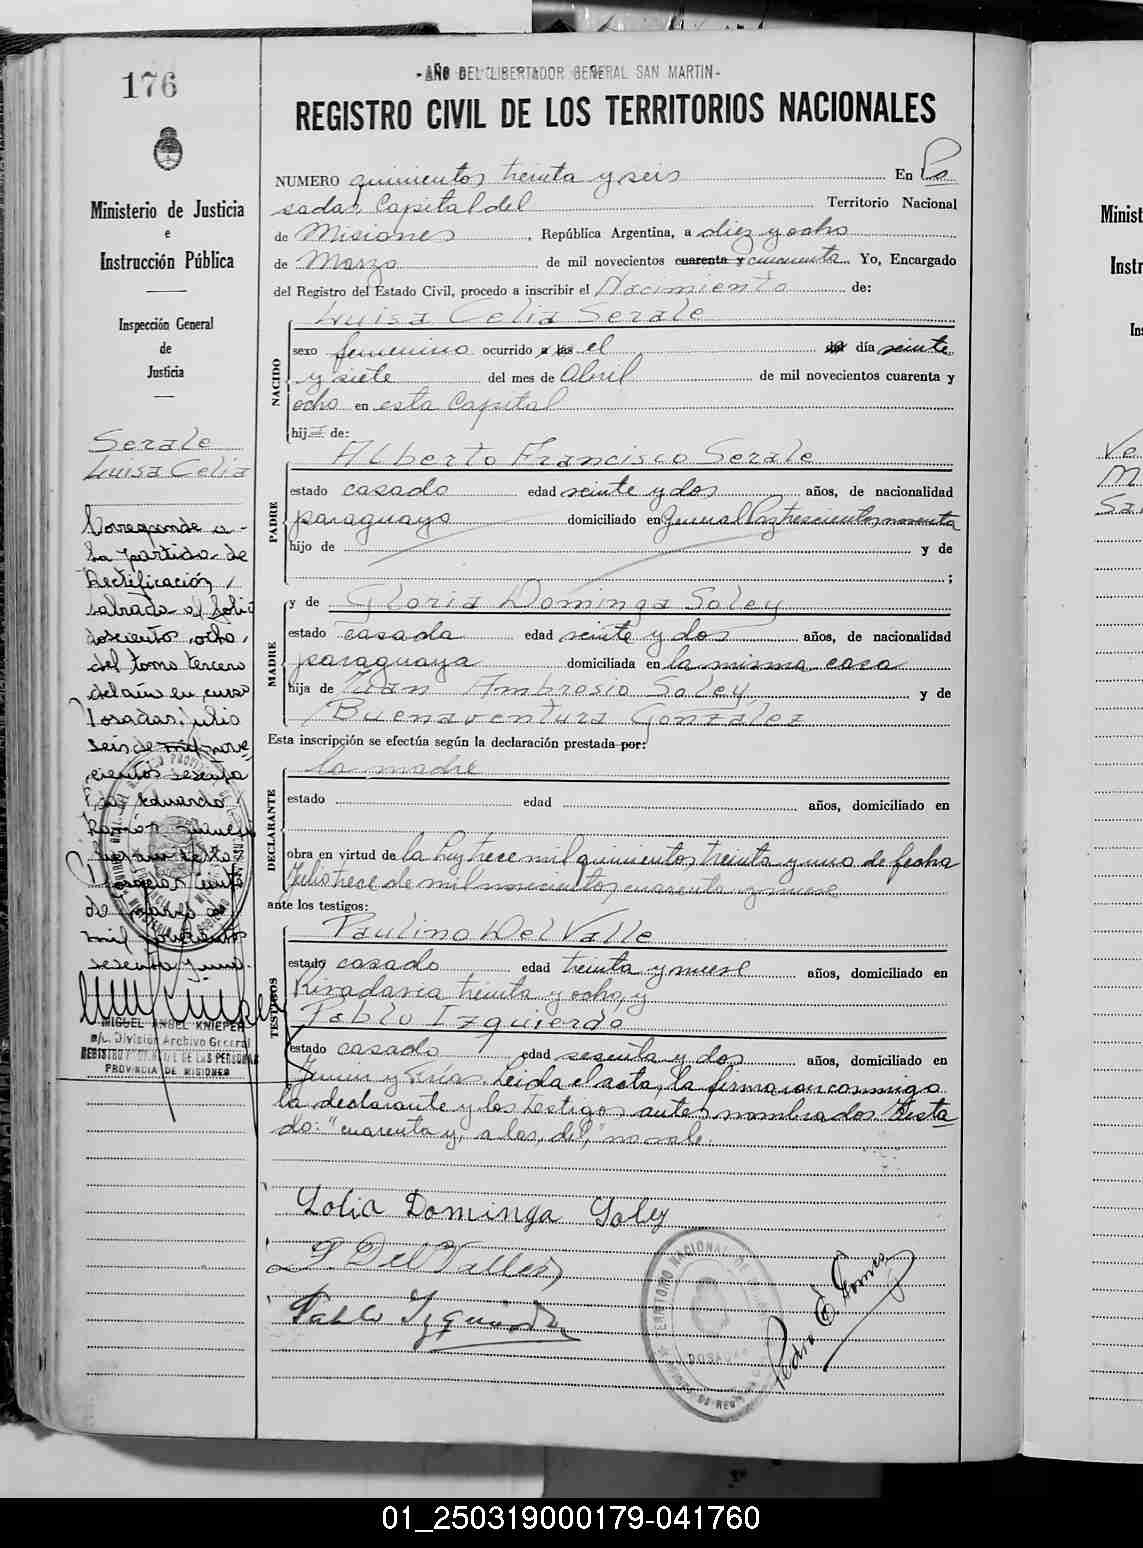 176
-AÑO DEL LIBERTADOR GENERAL SAN MARTIN-
REGISTRO CIVIL DE LOS TERRITORIOS NACIONALES
Ministerio de Justicia
e
Instrucción Pública
Inspección General
de
Justicia
Serale
Luisa Celia
Corresponde a
la partida de
Rectificación,
labrada al folio
doscientos ocho,
del tomo tercero
del año en curso
Posadas, julio
seis de mil nove
cientos sesenta
Eduardo
Ramón
Posadas
de marzo de
mil novecientos
sesenta y uno.
MIGUEL ANGEL KNIEPER
a/c. División Archivo General
REGISTRO PROVINCIAL DE LAS PERSONAS
PROVINCIA DE MISIONES
NUMERO quinientos treinta y seis En Po
sadas, Capital del Territorio Nacional
de Misiones, República Argentina, a diez y ocho
de Marzo de mil novecientos cuarenta y cincuenta. Yo, Encargado
del Registro del Estado Civil, procedo a inscribir el Nacimiento de:
NACIDO
Luisa Celia Serale
sexo femenino ocurrido a las el del día veinte
y siete del mes de Abril de mil novecientos cuarenta y
ocho en esta Capital
hija de:
PADRE
Alberto Francisco Serale
estado casado edad veinte y dos años, de nacionalidad
paraguayo domiciliado en General Paz trescientos noventa
hijo de y de
;
MADRE
y de Gloria Dominga Soley
estado casada edad veinte y dos años, de nacionalidad
paraguaya domiciliada en la misma casa
hija de Juan Ambrosio Soley y de
Buenaventura González
Esta inscripción se efectúa según la declaración prestada por:
DECLARANTE
la madre
estado edad años, domiciliado en
obra en virtud de la Ley trece mil quinientos treinta y uno de fecha
Julio trece de mil novecientos cuarenta y nueve
ante los testigos:
TESTIGOS
Paulino Del Valle
estado casado edad treinta y nueve años, domiciliado en
Rivadavia treinta y ocho, y
Pablo Izquierdo
estado casado edad sesenta y dos años, domiciliado en
Junin y Salta. Leida el acta, la firmaron conmigo
la declarante y los testigos antes nombrados. Testa
do: "cuarenta y, a las, del," no vale.
Lolia Dominga Soley
P. Del Valle
Pablo Izquierdo
Pedro E. Gomez
TERRITORIO NACIONAL DE MISIONES
POSADAS
Minist
Instr
Ins
Ve
M
Sa
01_250319000179-041760